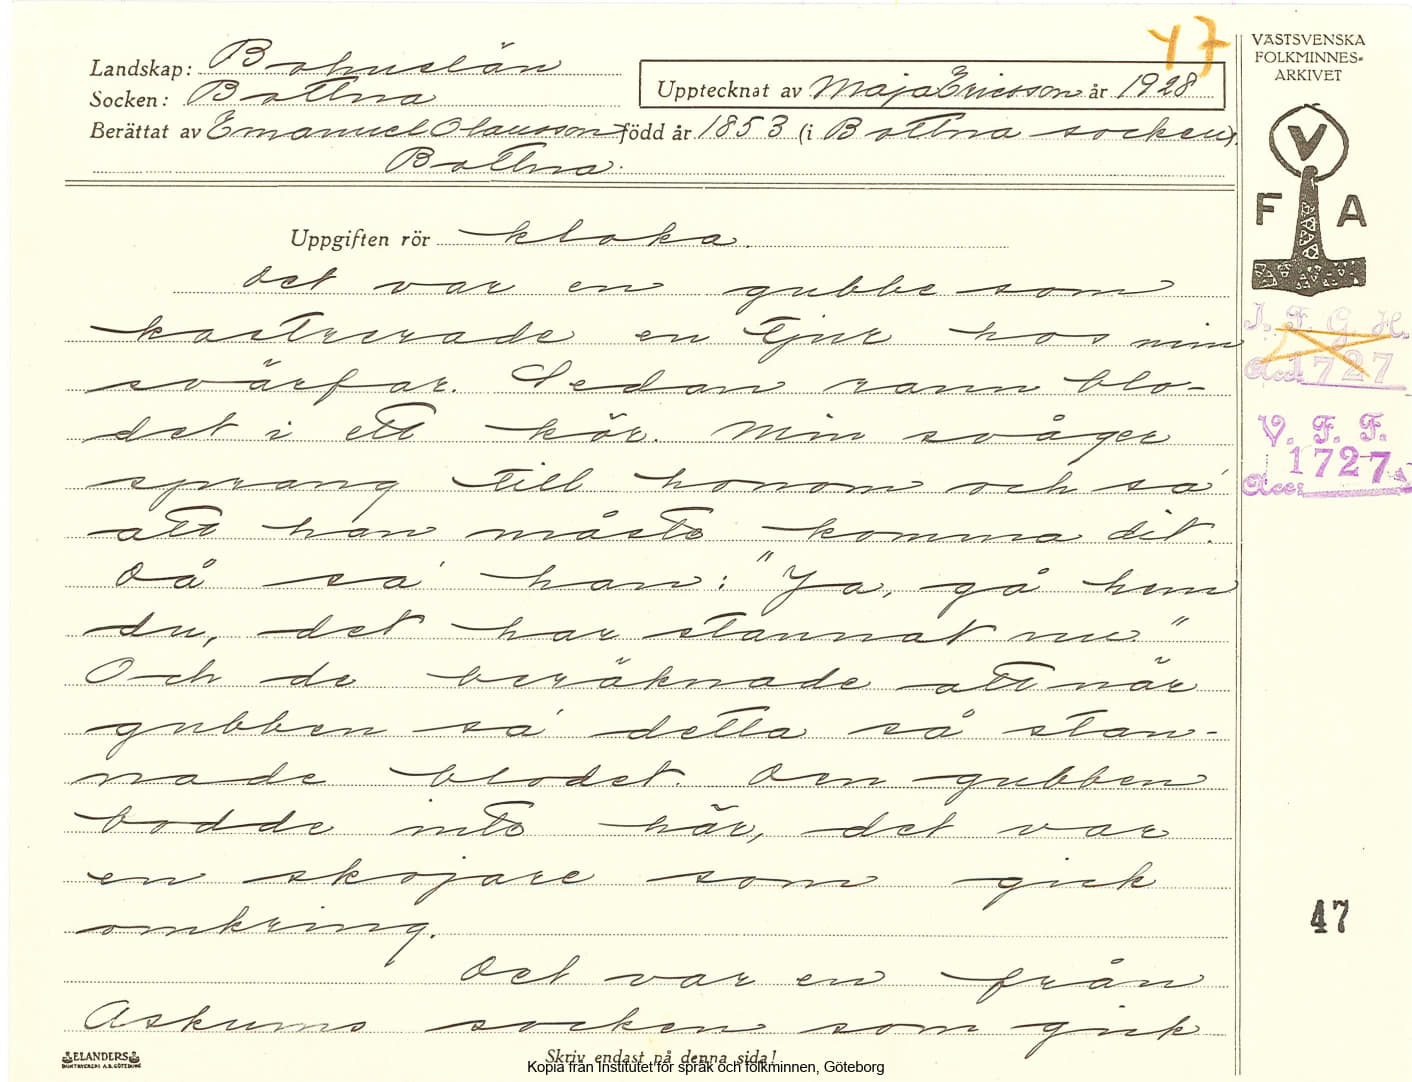 47
VÄSTSVENSKA
FOLKMINNES-
ARKIVET
Landskap: Bohuslän
Socken: Bottna
Upptecknat av Maja Ericsson år 1928
Berättat av Emanuel Olausson född år 1853 (i Bottna socken).
Bottna.
V
F A
Uppgiften rör kloka.
Det var en gubbe som
kastrerade en tjur hos min
svärfar. Sedan rann blo-
det i ett kör. Min svåger
sprang till honom och sa'
att han måste komma dit.
Då sa' han: "Ja, gå hem
du, det har stannat nu."
Och de beräknade att när
gubben sa' detta så stan-
nade blodet. Den gubben
bodde inte här, det var
en skojare som gick
omkring.
Det var en från
Askums socken som gick
I. F. G. H.
Acc. 1727
V. F. F.
Acc: 1727
47
ELANDERS
BOKTRYCKERI A.B. GÖTEBORG
Skriv endast på denna sida!
Kopia från Institutet för språk och folkminnen, Göteborg